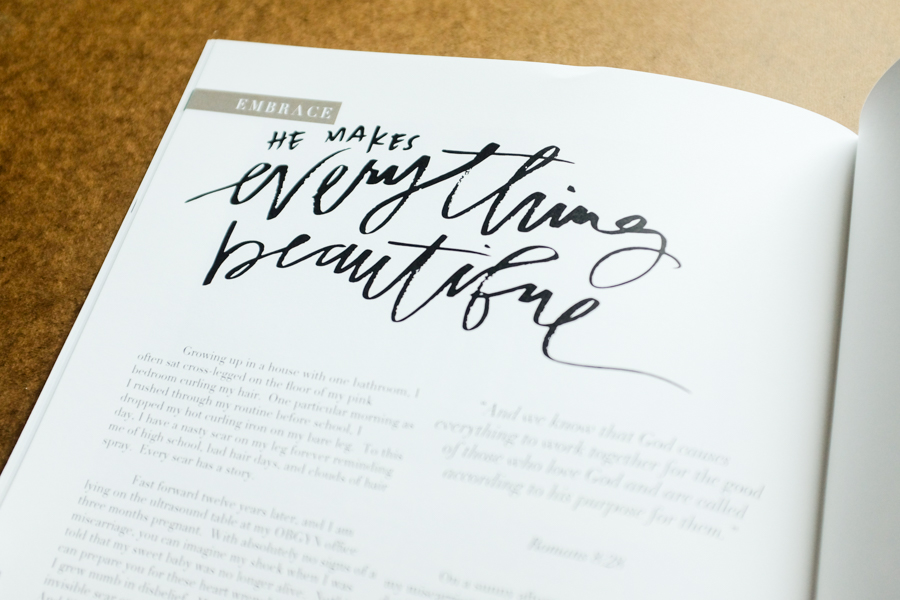 EMBRACE
HE MAKES
everything
beautiful
Growing up in a house with one bathroom, I
often sat cross-legged on the floor of my pink
bedroom curling my hair. One particular morning as
I rushed through my routine before school, I
dropped my hot curling iron on my bare leg. To this
day, I have a nasty scar on my leg forever reminding
me of high school, bad hair days, and clouds of hair
spray. Every scar has a story.
Fast forward twelve years later, and I am
lying on the ultrasound table at my OBGYN office
three months pregnant. With absolutely no signs of a
miscarriage, you can imagine my shock when I was
told that my sweet baby was no longer alive.
can prepare you for these heart
I grew numb in disbelief.
invisible scar
"And we know that God causes
everything to work together for the good
of those who love God and are called
according to his purpose for them."
Romans 8:28
On a
my